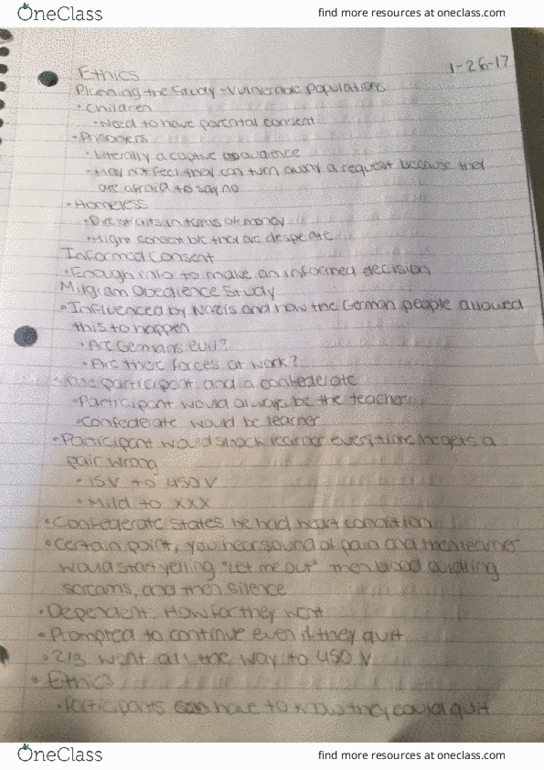 OneClass
find more resources at oneclass.com
1-26-17
Ethics
Planning the Study - Vulnerable populations
• Children
• Need to have parental consent
• Prisoners
• Literally a captive audience
• May not feel they can turn away a request because they
are afraid to say no
• Homeless
• Dire straits in terms of money
• Might consent b/c they are desperate
Informed Consent
• Enough info to make an informed decision
Milgram Obedience Study
• Influenced by Nazis and how the German people allowed
this to happen
• Are Germans evil?
• Are there forces at work?
participant and a confederate
• Participant would always be the teacher
• Confederate would be learner
• Participant would shock learner everytime he gets a
pair wrong
• 15V to 450V
• Mild to XXX
• Confederate states he had heart condition
• Certain point, you hear sound of pain and then learner
would start yelling "Let me out" then blood curdling
screams, and then silence
• Dependent: How far they went
• Prompted to continue even if they quit
• 2/3 went all the way to 450 V
• Ethics
• Participants have to know they could quit
OneClass
find more resources at oneclass.com